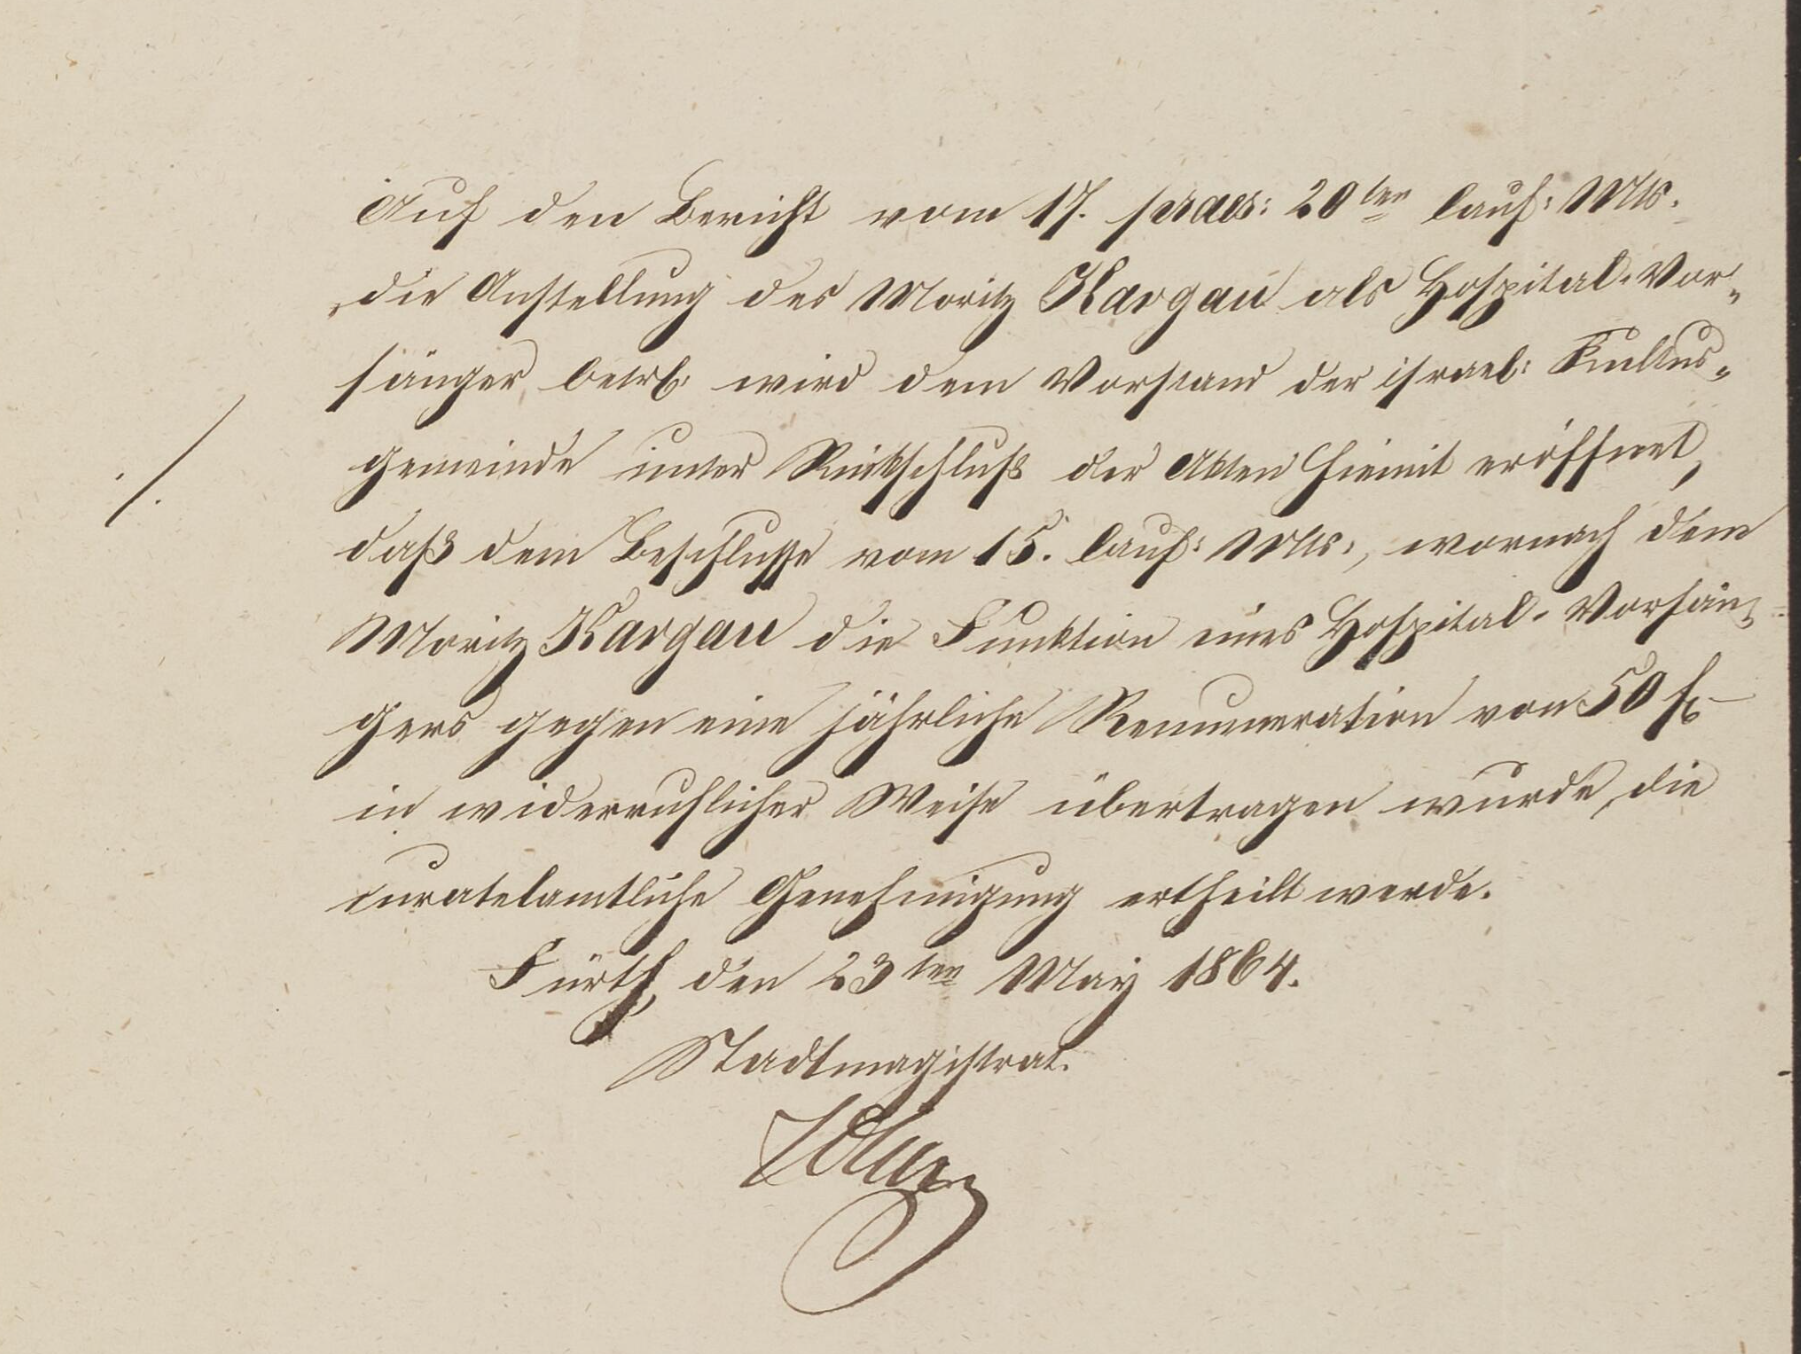 Auf den Bericht vom 17. praes: 20ten lauf: Mts.
die Anstellung des Moritz Kargau als Hospital-Vor-
sänger betr. wird dem Vorstand der israel: Kultus-
gemeinde unter Rückschluß der Akten hiemit eröffnet,
./.
daß dem Beschlusse vom 15. lauf: Mts:, wornach dem
Moritz Kargau die Funktion eines Hospital-Vorsän-
gers gegen eine jährliche Remuneration von 50 f.
in widerruflicher Weise übertragen wurde, die
curatelamtliche Genehmigung ertheilt werde.
Fürth, den 23ten May 1864.
Stadtmagistrat.